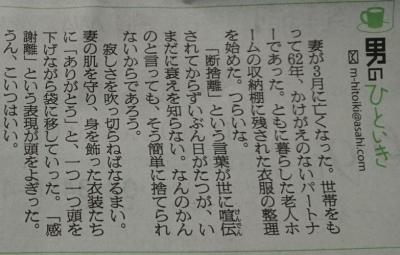 男のひといき
m-hitoiki@asahi.com
妻が3月に亡くなった。世帯をも
って62年、かけがえのないパートナ
ーであった。ともに暮らした老人ホ
ームの収納棚に残された衣服の整理
を始めた。つらいな。
「断捨離」という言葉が世に喧伝
けんでん
されてからずいぶん日がたつが、い
まだに衰えを知らない。なんのかん
のと言っても、そう簡単に捨てられ
ないからであろう。
寂しさを吹っ切らねばなるまい。
妻の肌を守り、身を飾った衣装たち
に「ありがとう」と、一つ一つ頭を
下げながら袋に移していった。「感
謝離」という表現が頭をよぎった。
うん、こいつはいい。